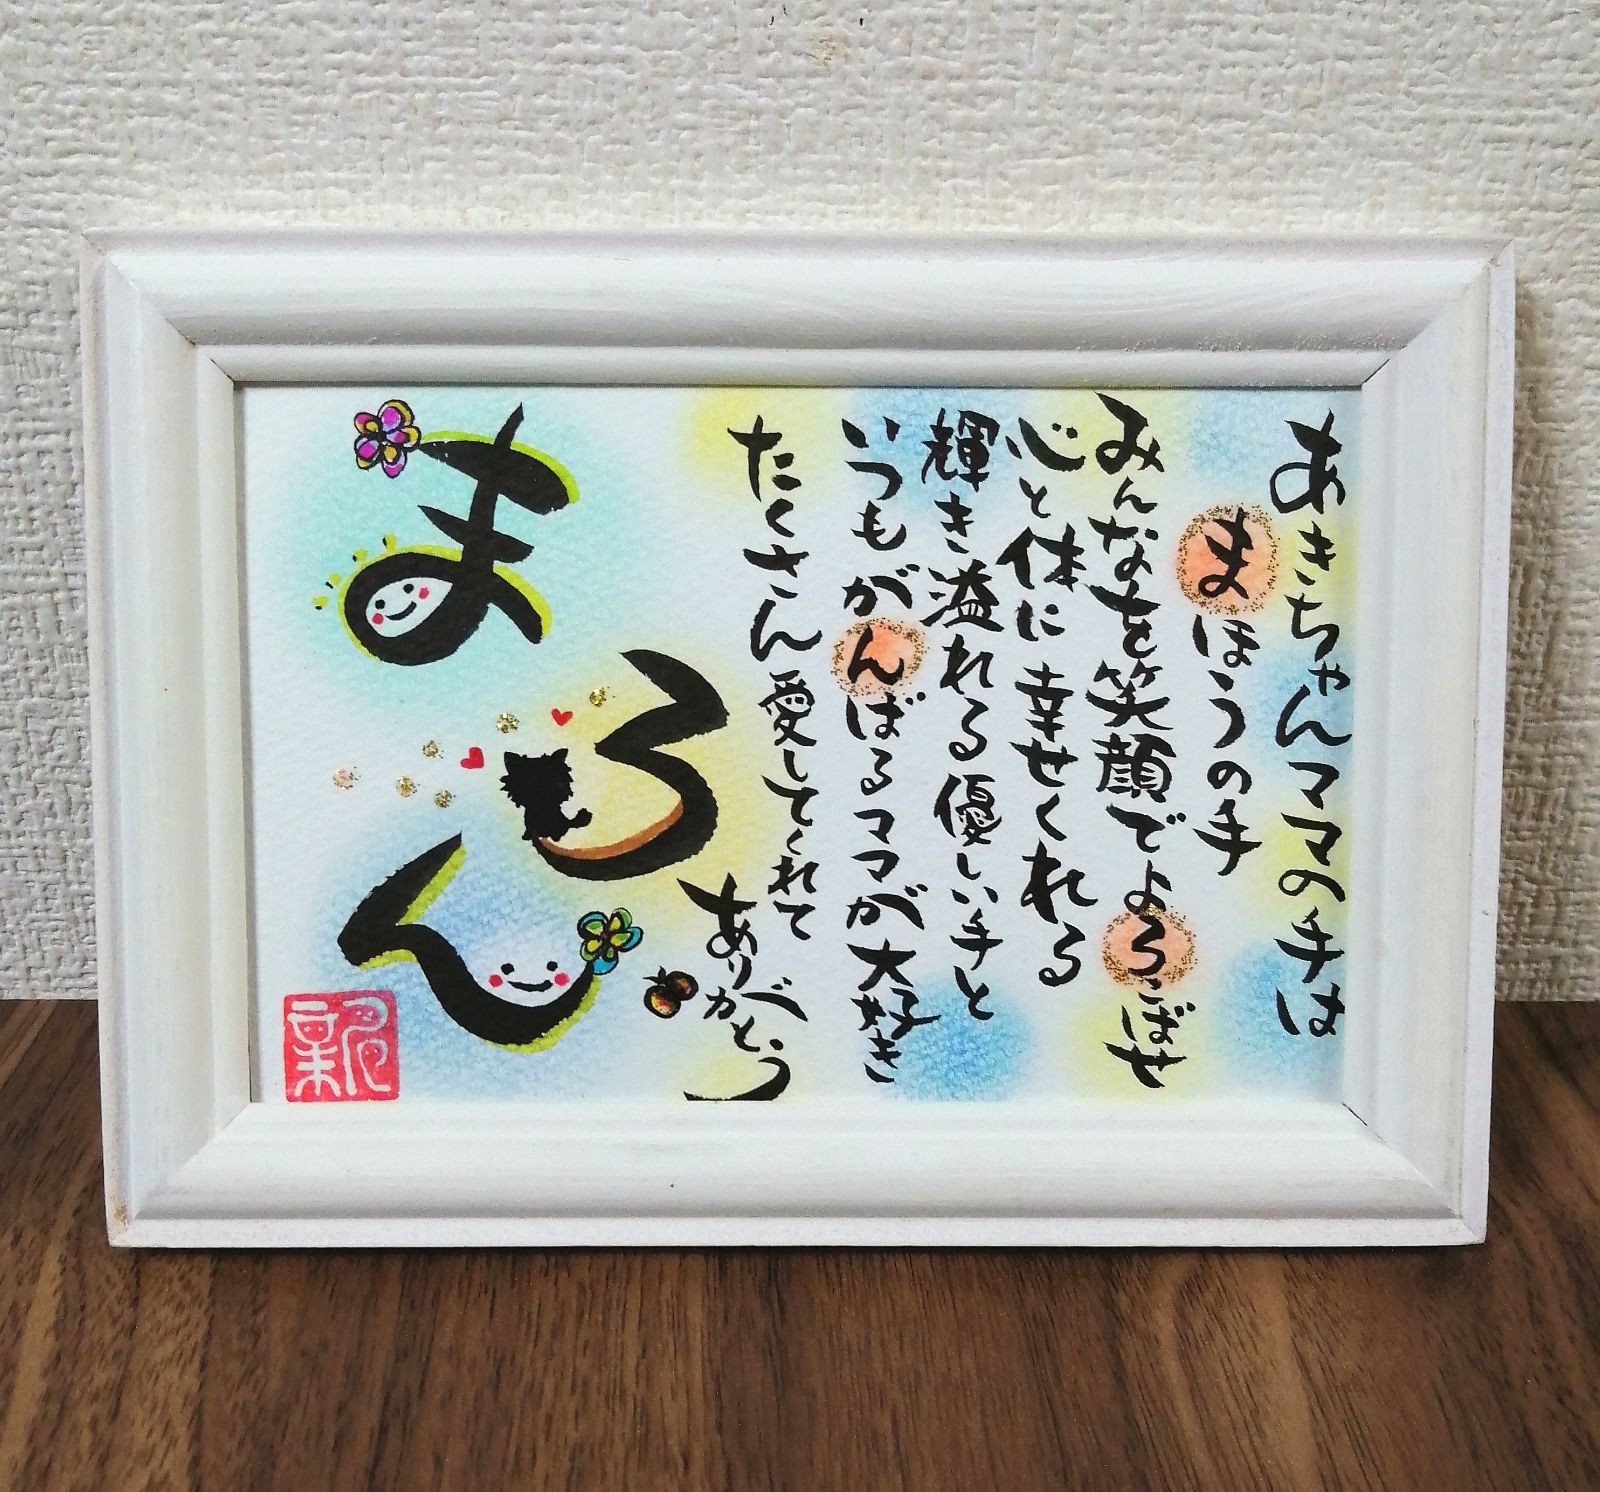 あきちゃんママの手は
まほうの手
みんなを笑顔でよろこばせ
心と体に幸せくれる
輝き溢れる優しい手と
いつもがんばるママが大好き
たくさん愛してくれて
ありがとう
まろん